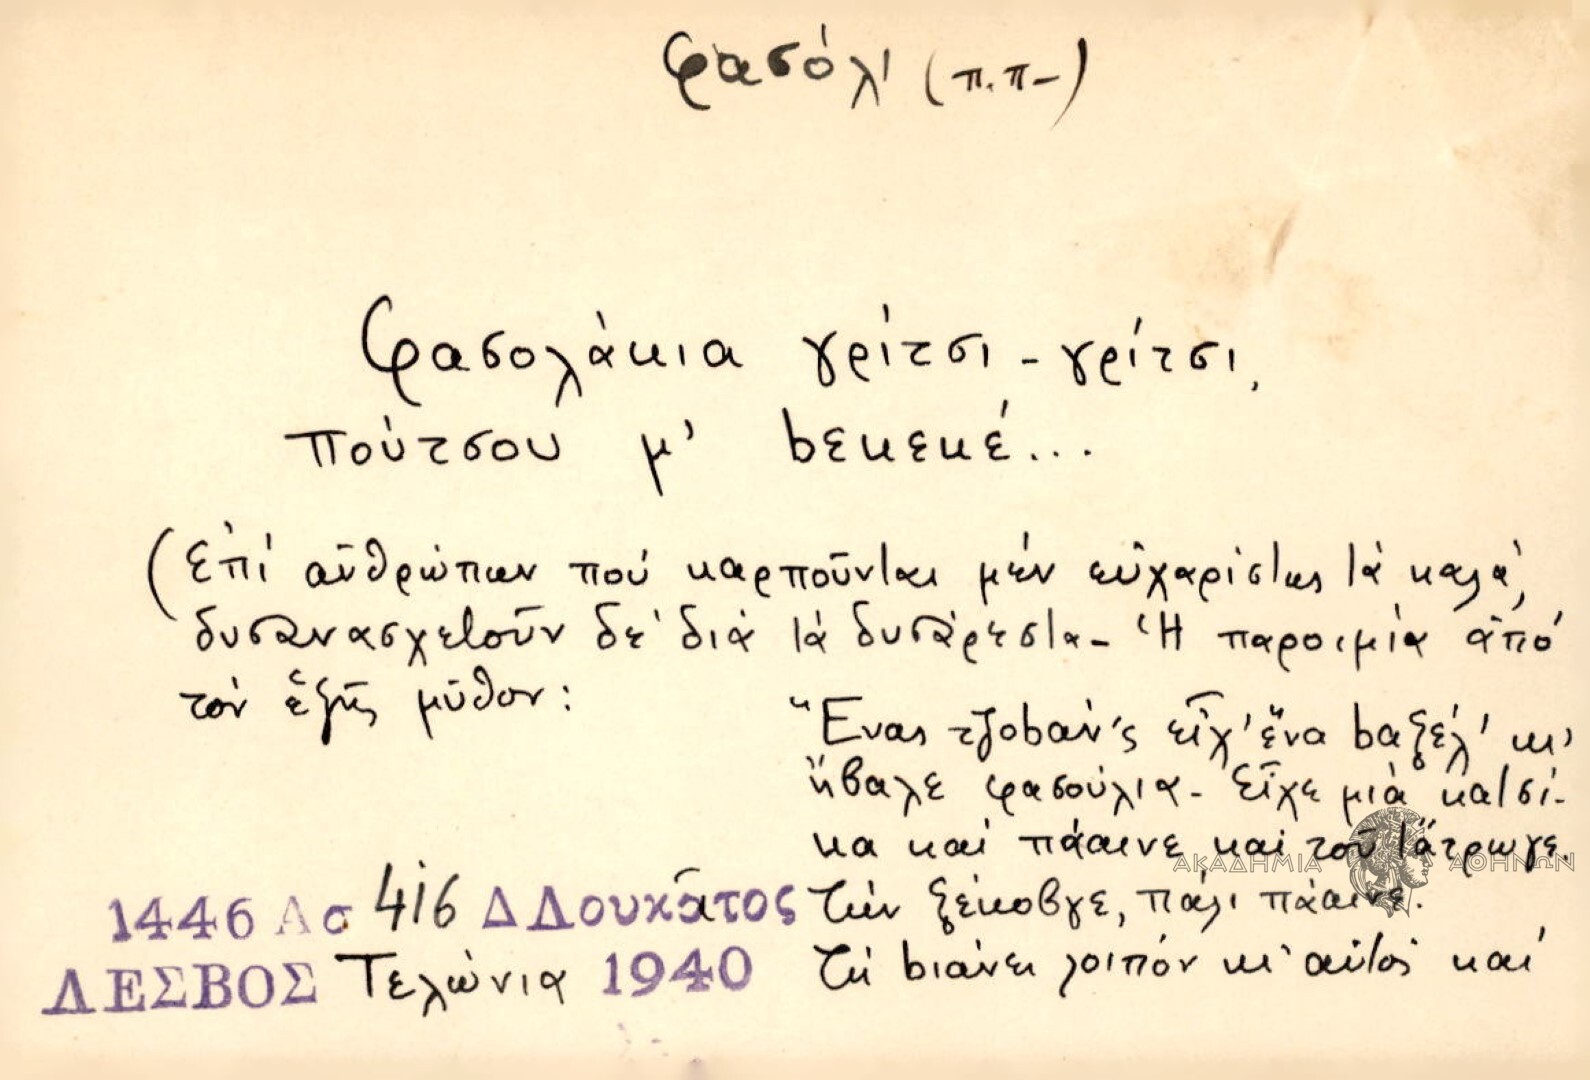 φασόλι (π.π-)
Φασολάκια γρίτσι - γρίτσι,
πούτσου μ' bεκεκέ...
(ἐπί ἀνθρώπων πού καρποῦνται μέν εὐχαρίστως τά καλά,
δυσανασχετοῦν δέ διά τά δυσάρεστα - Ἡ παροιμία ἀπό
τόν ἑξῆς μῦθον:
Ἕνας τζοbάν'ς εἶχ' ἕνα bαξέλ' κι'
ἤβαλε φασούλια - Εἶχε μιά κατσί-
κα καί πάαινε καί τοῦ τἄτρωγε.
Τήν ξέκοβγε, πάλι πάαινε.
Τή bιάνει λοιπόν κι' αὐτός καί
1446 Ας 416 Δ Δουκᾶτος
ΛΕΣΒΟΣ Τελώνια 1940
ΑΚΑΔΗΜΙΑ ΑΘΗΝΩΝ